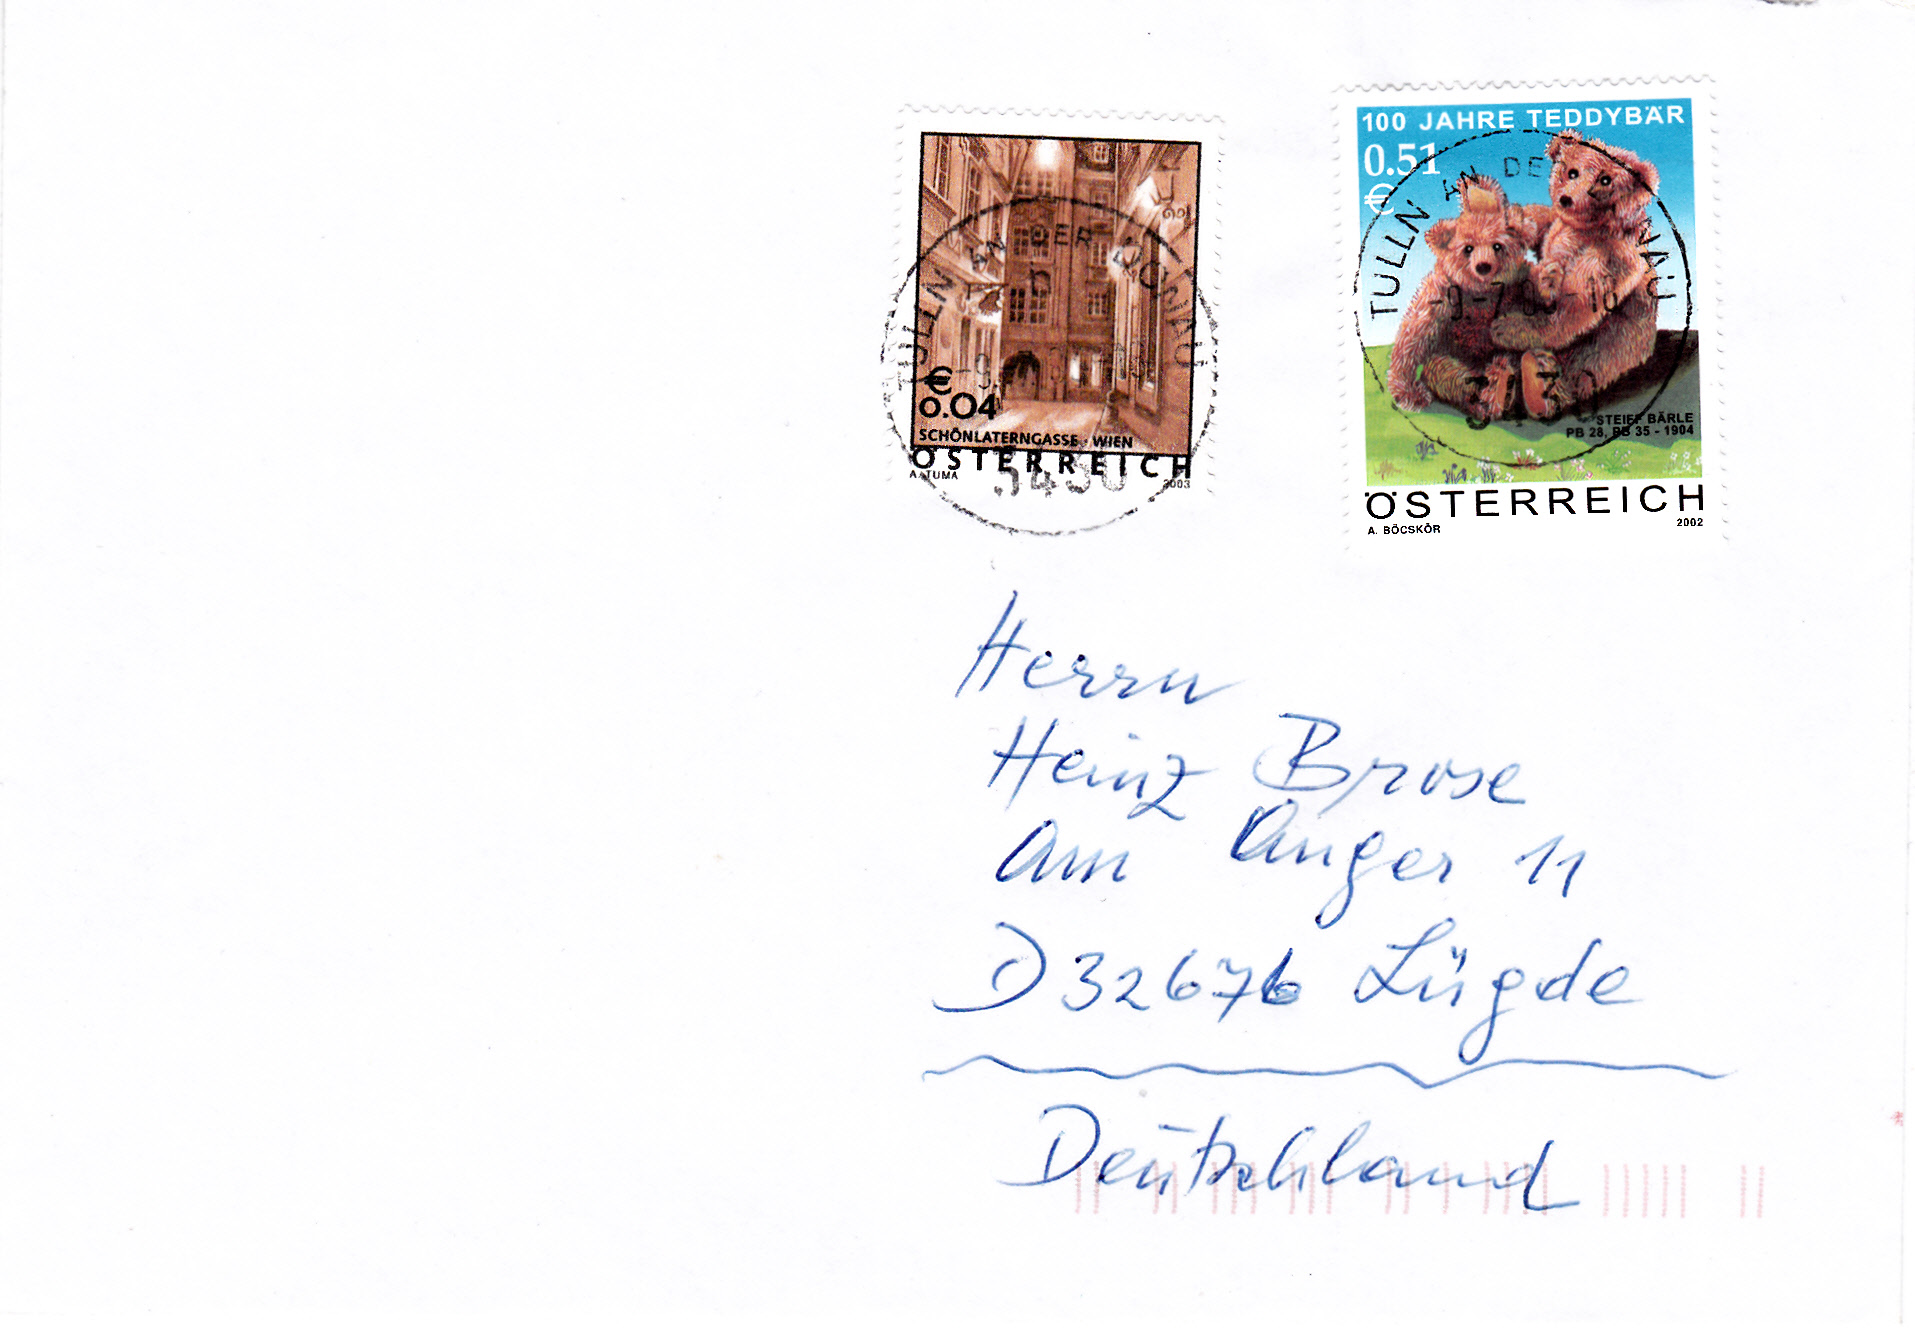 100 JAHRE TEDDYBÄR
0.51
€
TULLN AN DER DONAU
-9.-7.03-18
3430
STEIFF BÄRLE
PB 28, PB 35 - 1904
ÖSTERREICH
A. BÖCSKÖR
2002
TULLN AN DER DONAU
-9.
3430
€
0.04
SCHÖNLATERNGASSE · WIEN
ÖSTERREICH
A. TUMA
2003
Herrn
Heinz Brose
Am Anger 11
D 32676 Lügde
Deutschland